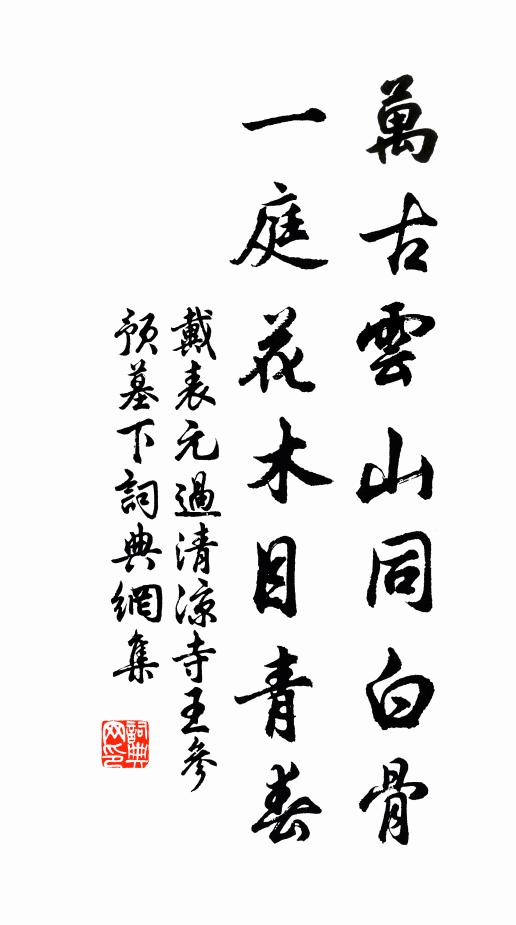 萬古雲山同白骨
一庭花木目青春
戴表元過清涼寺王參
預墓下詞典網集
詞典
网印